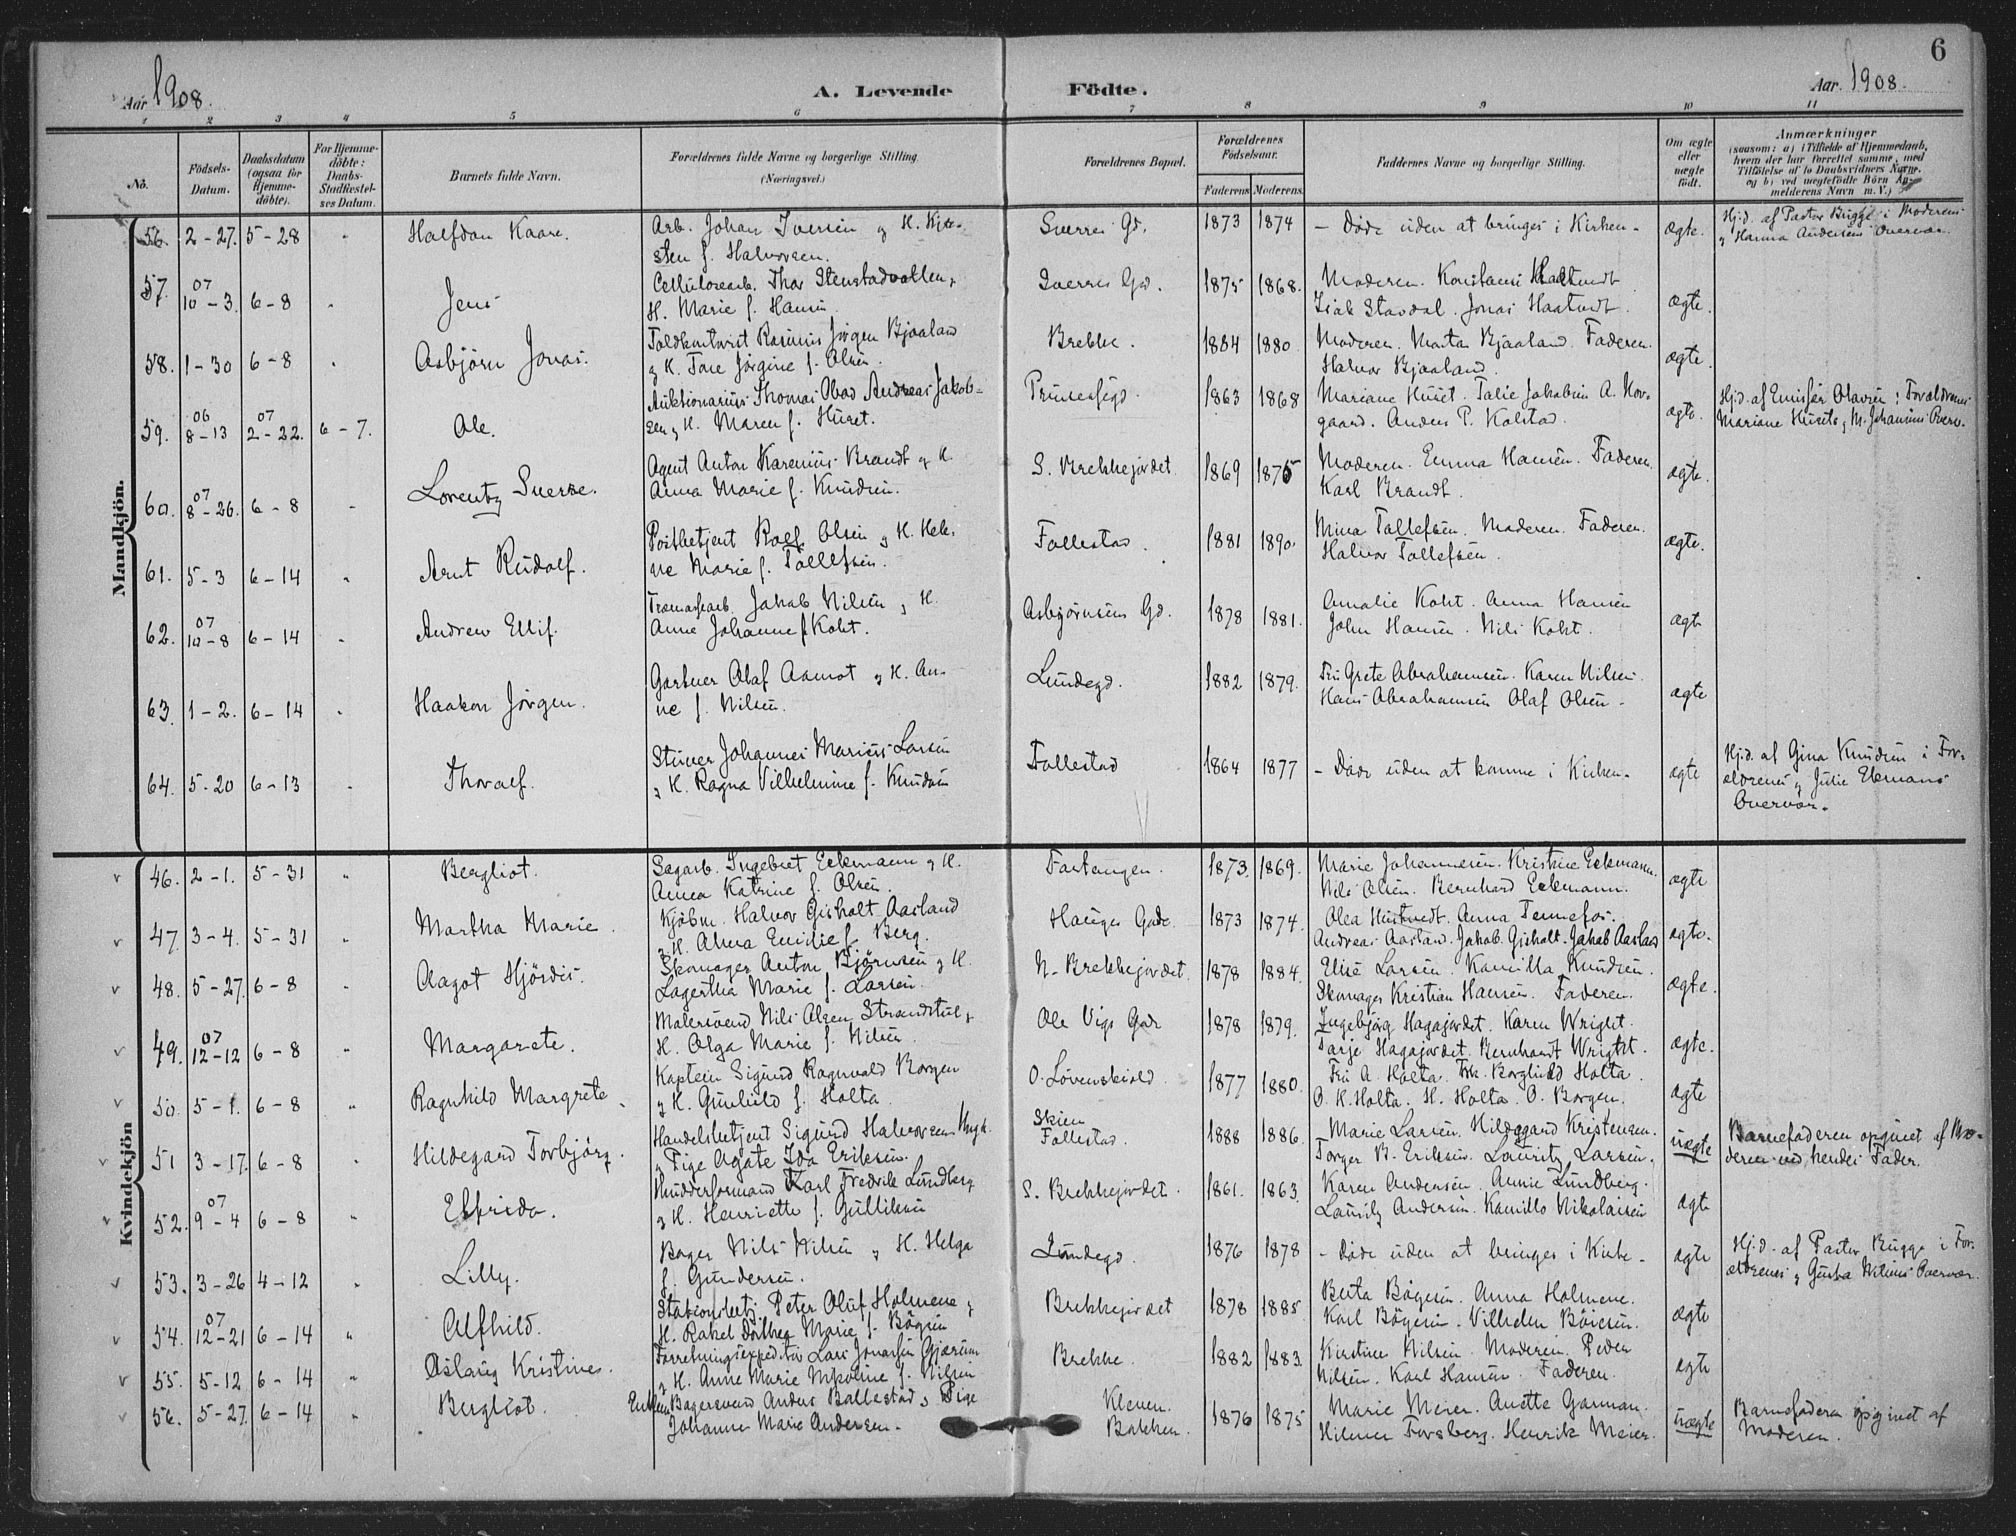 6
Aar 1908.
A. Levende Födte.
Aar 1908.
1 2 3 4 5 6 7 8 9 10 11
No.
Födsels-Datum.
Daabsdatum (ogsaa for Hjemmedöbte).
For Hjemmedöbte: Daabs-Stadfæstelses Datum.
Barnets fulde Navn.
Forældrenes fulde Navne og borgerlige Stilling. (Næringsvei.)
Forældrenes Bopæl.
Forældrenes Födselsaar.
Faderens Moderens
Faddernes Navne og borgerlige Stilling.
Om ægte eller uægte födt.
Anmærkninger (saasom: a) i Tilfælde af Hjemmedaab, hvem der har forrettet samme, med Tilföielse af to Daabsvidners Navne, og b) ved uægtefödte Börn Anmelderens Navn m. V.)
Mandkjön.
56. 2-27. 5-28 " Halfdan Kaare. Arb. Johan Iversen og H. Kjer-
sten f. Halvorsen. Sverres Gd. 1873 1874 - Døde uden at bringes i Kirken - ægte. Hjd. af Pastor Bugge i Moderens
& Hanna Andersens Overvær.
57. 07 10-3. 6-8 " Jens Cellulosearb. Thor Stenstadvollen &
H. Marie f. Hansen. Sverres Gd. 1875 1868. Moderen. Konstanse Haatvedt
Isak Stavdal. Jonas Haatvedt. ægte.
58. 1-30 6-8 " Asbjørn Jonas. Toldkontorist Rasmus Jørgen Bjaaland
& H. Tone Jørgine f. Olsen. Brekke. 1884 1880 Moderen. Marta Bjaaland. Faderen.
Halvor Bjaaland. ægte.
59. 06 8-13 07 2-22. 6-7. Ole. Auktionarius Thomas Obad Andreas Jakob-
sen & H. Maren f. Huset. 1863 1868 Mariane Huset. Talie Jakobsen A. Hov-
gaard. Anders P. Kolstad. ægte. Hjd. af Emissær Olavsen i Forældrenes
Mariane Husets & M. Johansens Overv.
60. 07 8-26. 6-8 " Lorentz Sverre. Agent Anton Karenius Brandt & H.
Anna Marie f. Knudsen. S. Brekkejordet 1869 1875 Moderen. Emma Hansen. Faderen.
Karl Brandt. ægte.
61. 5-3 6-14 " Arnt Rudolf. Postbetjent Rolf Olsen & H. Hele-
ne Marie f. Tollefsen. Follestad. 1881 1890. Mina Tollefsen. Moderen. Faderen.
Halvor Tollefsen. ægte.
62. 07 10-8 6-14 " Andrew Ellif. Træmassearb. Jakob Nilsen & H.
Anne Johanne f. Koht. Asbjørnsens Gd. 1878 1881. Amalie Koht. Anna Hansen
John Hansen. Nils Koht. ægte
63. 1-2. 6-14 " Haakon Jørgen. Gartner Olaf Aamot & H. An-
ne f. Nilsen. Lundegd. 1882 1879. Fru Grete Abrahamsen. Karen Nilsen.
Hans Abrahamsen Olaf Olsen - ægte
64. 5-20 6-13 " Thoralf. Stuver Johannes Marius Larsen
& H. Ragna Vilhelmine f. Knudsen Follestad 1864 1877 - Døde uden at komme i Kirken. ægte Hjd. af Gina Knudsen i For-
ældrenes & Julie Ekmans
Overvær.
Kvindekjön
46. 2-1. 5-31 " Bergliot. Sagarb. Ingebret Eekmann & H.
Anna Katrine f. Olsen. Fartangen. 1873. 1869. Marie Johannesen. Kristine Eekmann.
Nils Olsen. Bernhard Eekmann. ægte
47. 3-4. 5-31 " Martha Marie. Kjøbm. Halvor Gisholt Aasland
& H. Alma Emilie f. Berg. Hauges Gade 1873 1874. Olea Hustvedt. Anna Tennefos.
Andreas Aasland. Jakob Gisholt. Jakob Aasland ægte.
48. 5-27. 6-8 " Aagot Hjørdis. Skomager Anton Bjørnsen & H.
Lagertha Marie f. Larsen. N. Brekkejordet. 1878 1884. Elise Larsen. Kamilla Knudsen.
Skomager Kristian Hansen. Faderen. ægte.
49. 07 12-12 6-8 " Margarete. Malersvend Nils Olsen Strandstul &
H. Olga Marie f. Nilsen. Ole Vigs Gade 1878 1879. Ingebjørg Hagajordet. Karen Wright.
Tarje Hagajordet. Bernhardt Wright. ægte.
50. 5-1. 6-8 " Ragnhild Margrete. Kaptein Sigurd Ragnvald Borgen
& H. Gunhild f. Holta. O. Løvenskiold. 1877 1880. Fru A. Holta. Frk. Borghild Holta.
O. K. Holta. H. Holta. O. Borgen. ægte
51 3-17. 6-8 " Hildegard Torbjørg. Handelsbetjent Sigurd Halvorsen Ungk.
& Pige Agate Ida Eriksen. Skien Follestad. 1888 1886. Marie Larsen. Hildegard Kristensen.
Torger B. Eriksen. Lauritz Larsen. uægte Barnefaderen opgivet af Mo-
deren ved hendes Fader.
52. 07 9-4 6-8 " Elfrida. Mudderformand Karl Fredrik Lundberg
& H. Henriette f. Gulliksen S. Brekkejordet. 1861. 1863. Karen Andersen. Annie Lundberg.
Lauritz Andersen. Kamillo Nikolaisen ægte
53. 3-26 4-12 " Lilly. Bager Nils Nilsen & H. Helga
f. Gundersen. Lundegd 1876 1878 - Døde uden at bringes i Kirke - ægte Hjd. af Pastor Bugge i For-
ældrenes & Gusta Nilsens Overvær.
54. 07 12-21 6-14 " Alfhild. Stationsbetj. Peter Oluf Holmene &
H. Rakel Dorthea Marie f. Bøgsen Brekkejordet 1878 1885. Berta Bøgesen. Anna Holmene.
Karl Bøgesen. Vilhelm Böiesen. ægte
55. 5-12 6-14 " Aslaug Kristine. Forretningsexpeditør Lars Jonassen Gjærum
& H. Anne Marie f. Nilsen Brekke. 1882 1883. Kirstine Nilsen. Moderen. Peder
Nilsen. Karl Hansen. Faderen. ægte
56. 5-27. 6-14 " Bergliot. Enkem. Bagersvend Anders Ballestad & Pige
Johanne Marie Andersen. Kleven. Bakken. 1876 1875 Marie Meier. Anette Gorman.
Hilmer Forsberg. Henrik Meier. uægte Barnefaderen opgivet af
Moderen.